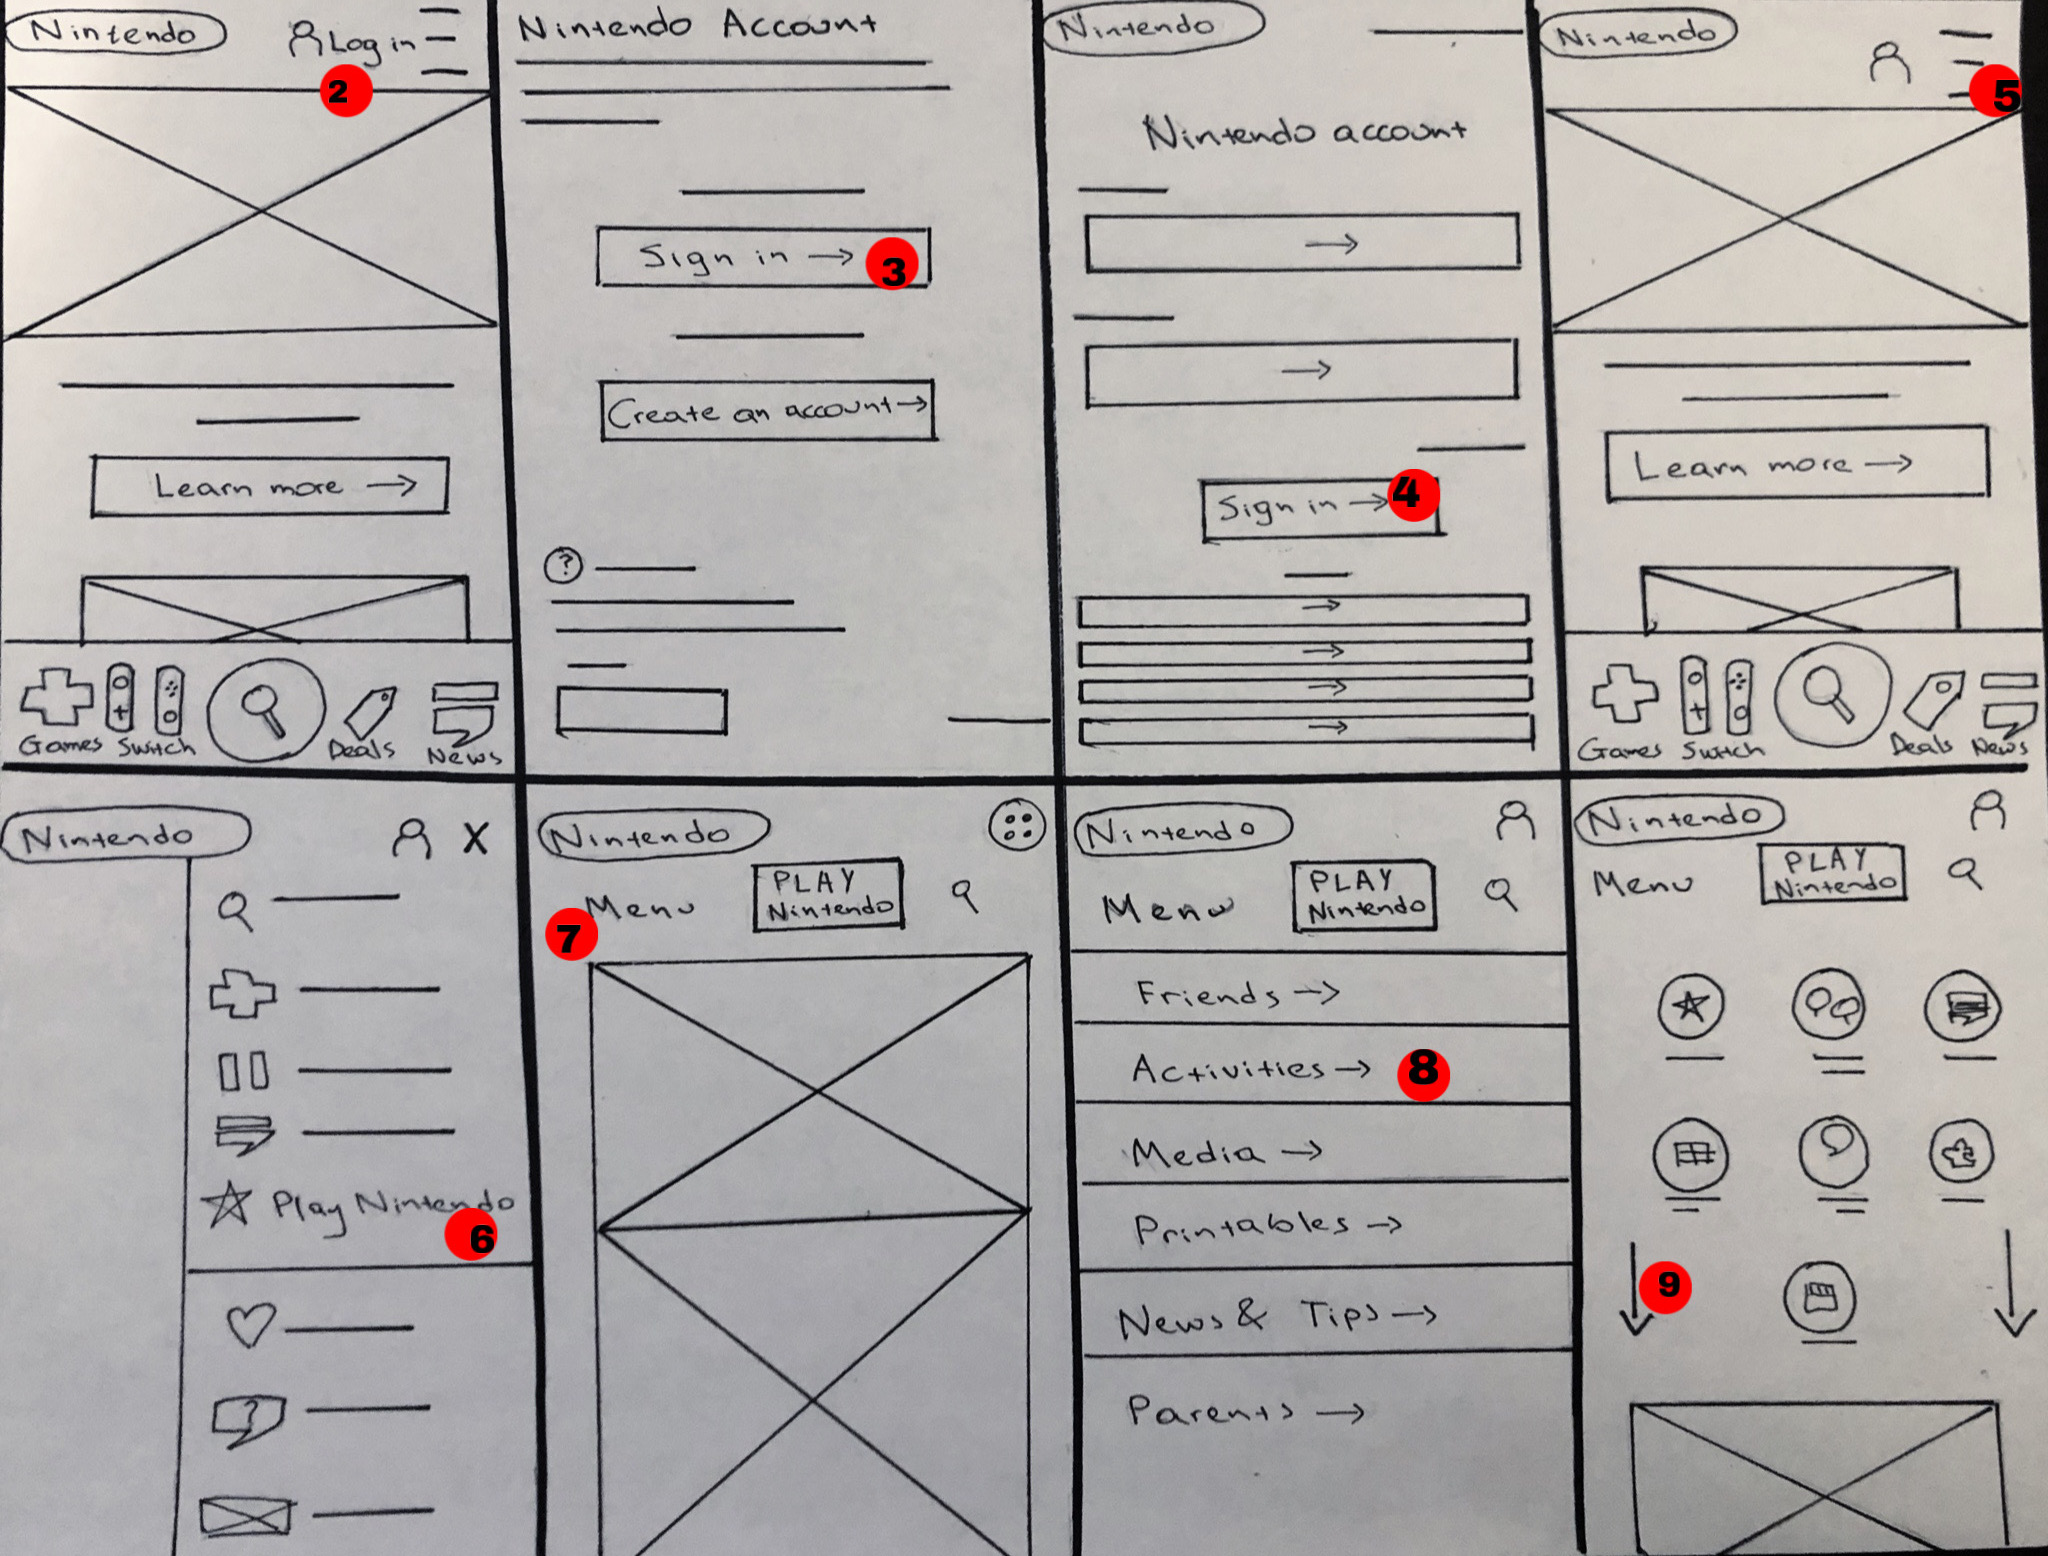 Nintendo
Log in
2
Learn more →
Games
Switch
Deals
News
Nintendo Account
Sign in →
3
Create an account→
?
Nintendo
Nintendo account
→
→
Sign in →
4
→
→
→
→
Nintendo
5
Learn more →
Games
Switch
Deals
News
Nintendo
X
Play Nintendo
6
?
Nintendo
Menu
PLAY
Nintendo
7
Nintendo
Menu
PLAY
Nintendo
Friends →
Activities →
8
Media →
Printables →
News & Tips →
Parents →
Nintendo
Menu
PLAY
Nintendo
9